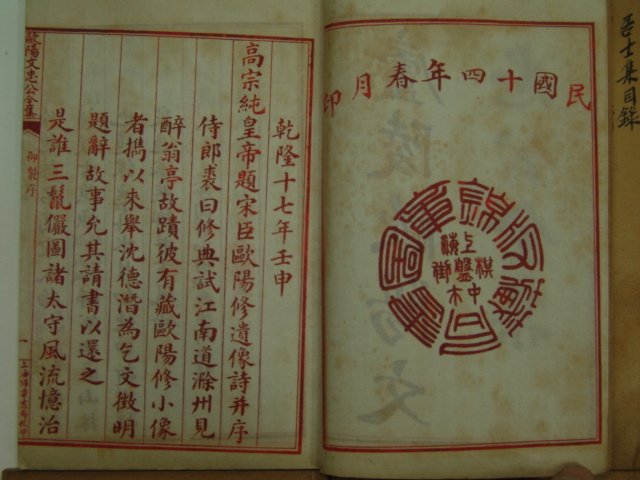 士集目錄
民國十四年春月印
上海棋盤街中
乾隆十七年壬申
高宗純皇帝題宋臣歐陽修遺像詩并序
侍郎裘曰修典試江南道滁州見
醉翁亭故蹟彼有藏歐陽修小像
者攜以來舉沈德潛為乞文徵明
題辭故事允其請書以還之
是誰三鬣儼圖諸太守風流憶治
歐陽文忠公全集
御製序
一